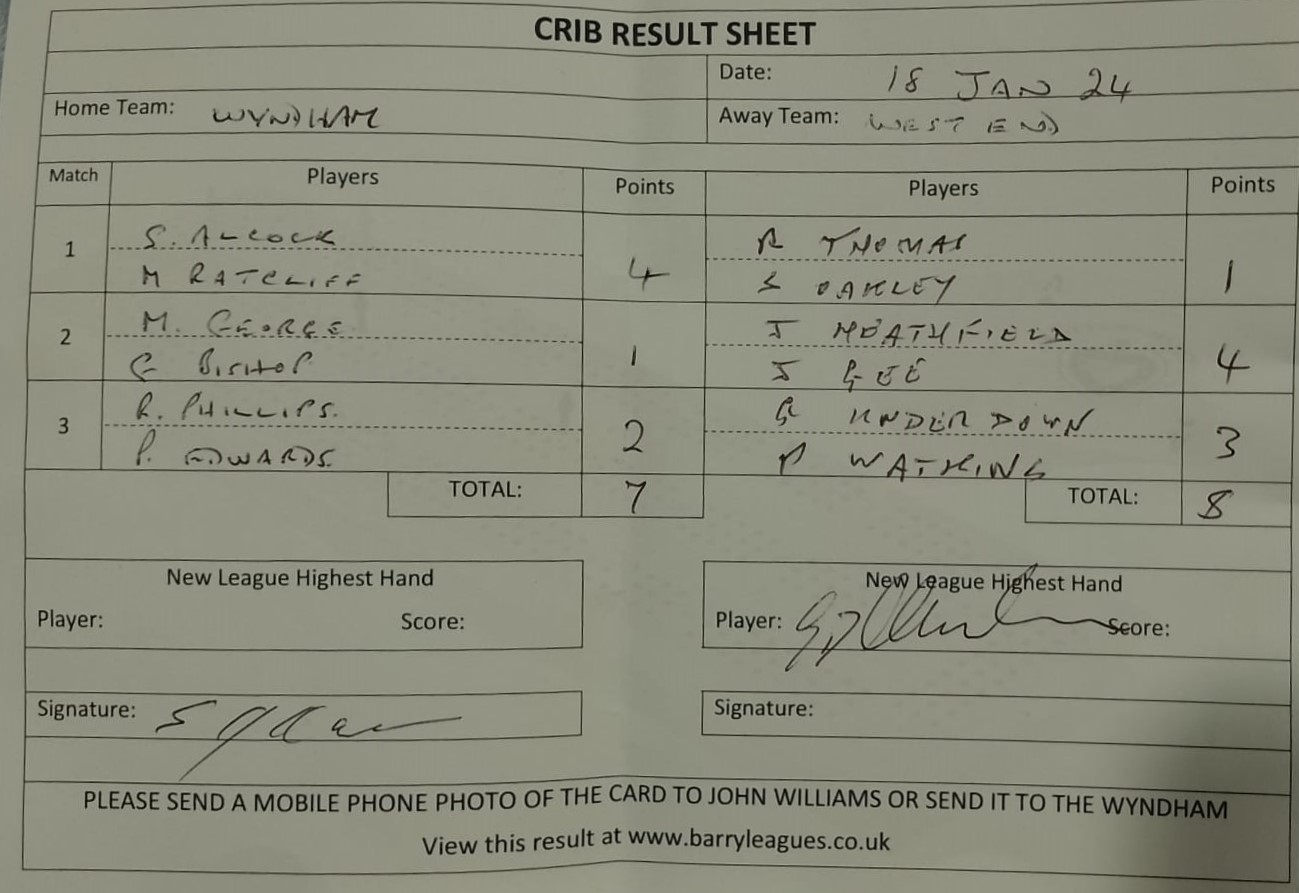 CRIB RESULT SHEET
Date: 18 JAN 24
Home Team: WYNDHAM Away Team: WEST END
Match Players Points Players Points
1 S. ALCOCK R THOMAS
M RATCLIFF 4 S OAKLEY 1
2 M. GEORGE J HEATHFIELD
G BISHOP 1 J GEE 4
3 R. PHILLIPS. G UNDERDOWN
P. EDWARDS. 2 P WATKINS 3
TOTAL: 7 TOTAL: 8
New League Highest Hand New League Highest Hand
Player: Score: Player: Score:
Signature: Signature:
PLEASE SEND A MOBILE PHONE PHOTO OF THE CARD TO JOHN WILLIAMS OR SEND IT TO THE WYNDHAM
View this result at www.barryleagues.co.uk